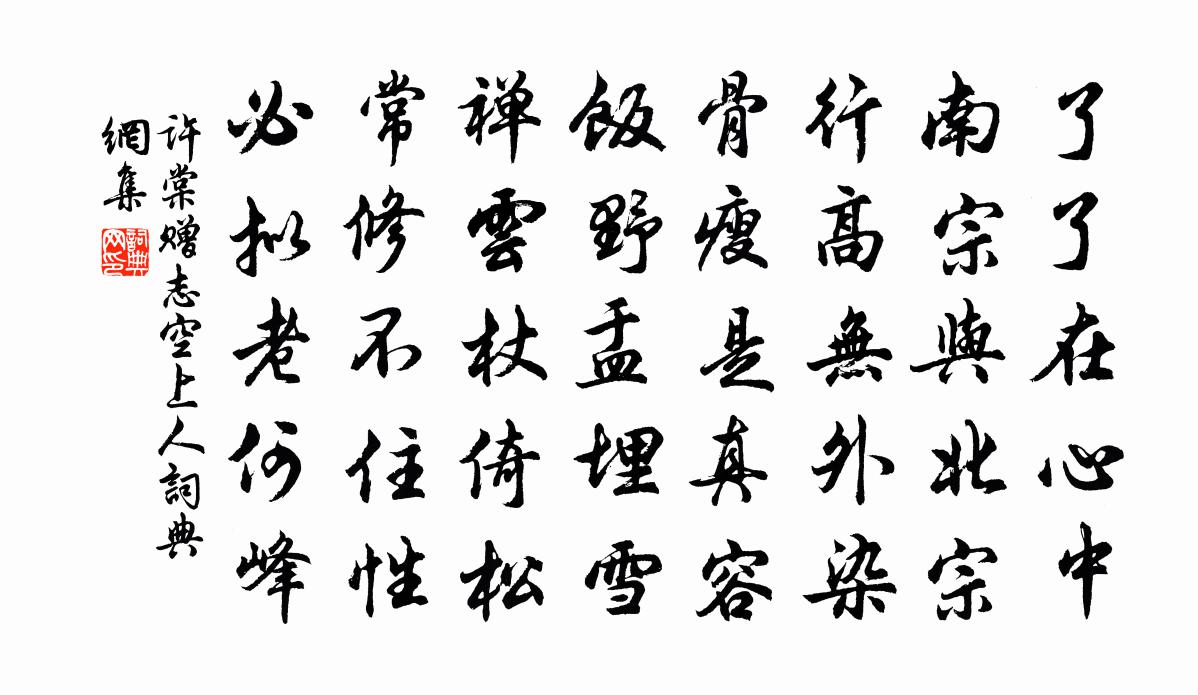 了了在心中
南宗與北宗
行高無外染
骨瘦是真容
飯野盂埋雪
禅雲杖倚松
常修不住性
必拟老何峰
许棠赠志空上人詞典
網集
詞典
网印